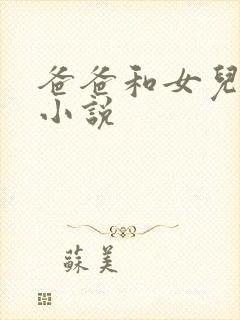 爸爸和女兒
小說
蘇美